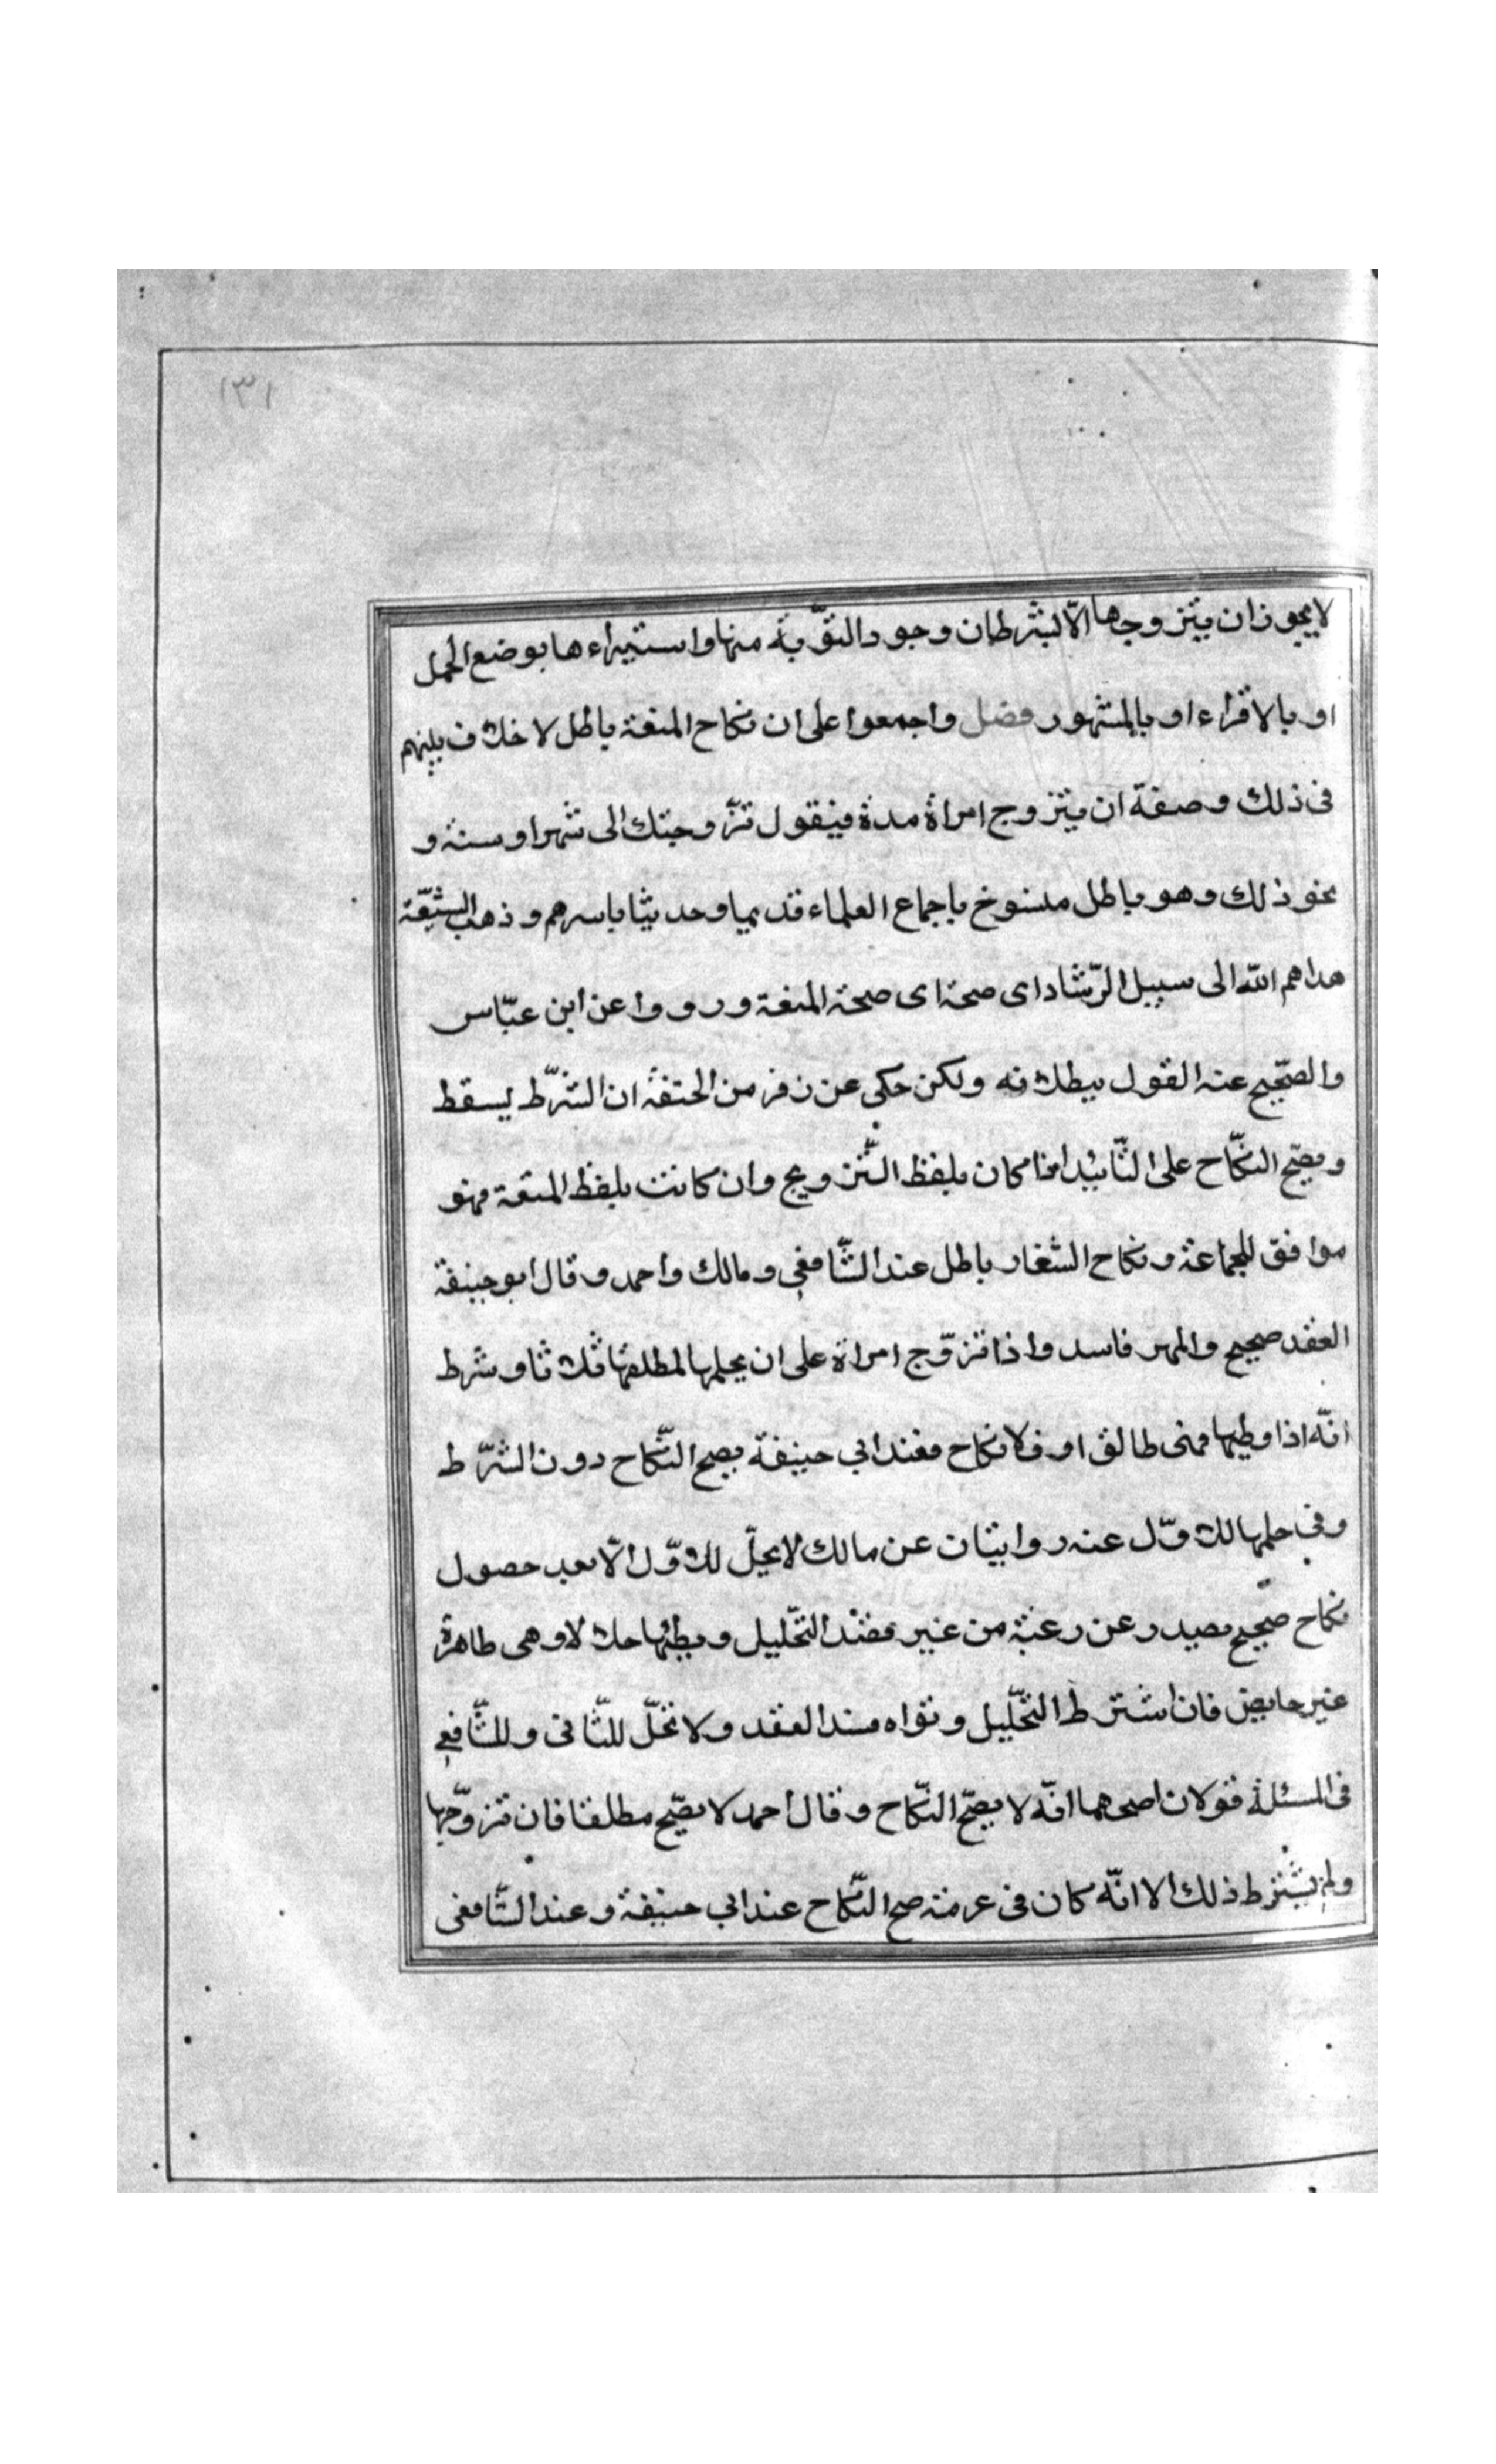 ١٣١
لا يجوز ان يتزوجها الّا بشرطان وجود التوّبة منها واستبراءها بوضع الحمل
او بالاقراء او بالشهور فصل واجمعوا على ان نكاح المتعة باطل لا خلاف بينهم
فى ذلك وصفة ان يتزوج امراة مدة فيقول تزّوجتك الى شهر او سنة و
نحو ذلك وهو باطل منسوخ باجماع العلماء قديما وحديثا باسرهم وذهب الشيّعة
هداهم الله الى سبيل الرّشاد اى صحة اى صحة المتعة ورووا عن ابن عبّاس
والصّحيح عنه القول ببطلانه ولكن حكى عن زفر من الحنفة ان الشّرط يسقط
ويصحّ النكّاح على التّابيد اذا كان بلفظ التّزويج وان كانت بلفظ المتعة فهو
موافق للجماعة ونكاح الشغار باطل عند الشّافعى ومالك واحمد وقال ابو حنيفة
العقد صحيح والمهر فاسد واذا تزوّج امراة على ان يحلها لمطلقها ثلاثا وشرط
انّه اذا وطيها فهى طالق او فلا نكاح فعند ابى حنيفة يصح النّكاح دون الشّرط
وفى حلها للاوّل عنه روايتان عن مالك لا يحلّ للاوّل الّا بعد حصول
نكاح صّحيح يصدر عن رغبة من غير قصد التّحليل ويطئها حلالا وهى طاهرة
غير حايض فان اشترط التّحليل ونواه فسد العقد ولا تحلّ للثّانى وللشّافعى
فى المسئلة قولان اصحهما انّه لا يصحّ النكّاح وقال احمد لا يصّح مطلقا فان تزوّجها
ولم يشترط ذلك الا انّه كان فى عزمة صح النّكاح عند ابى حنيفة وعند الشّافعى